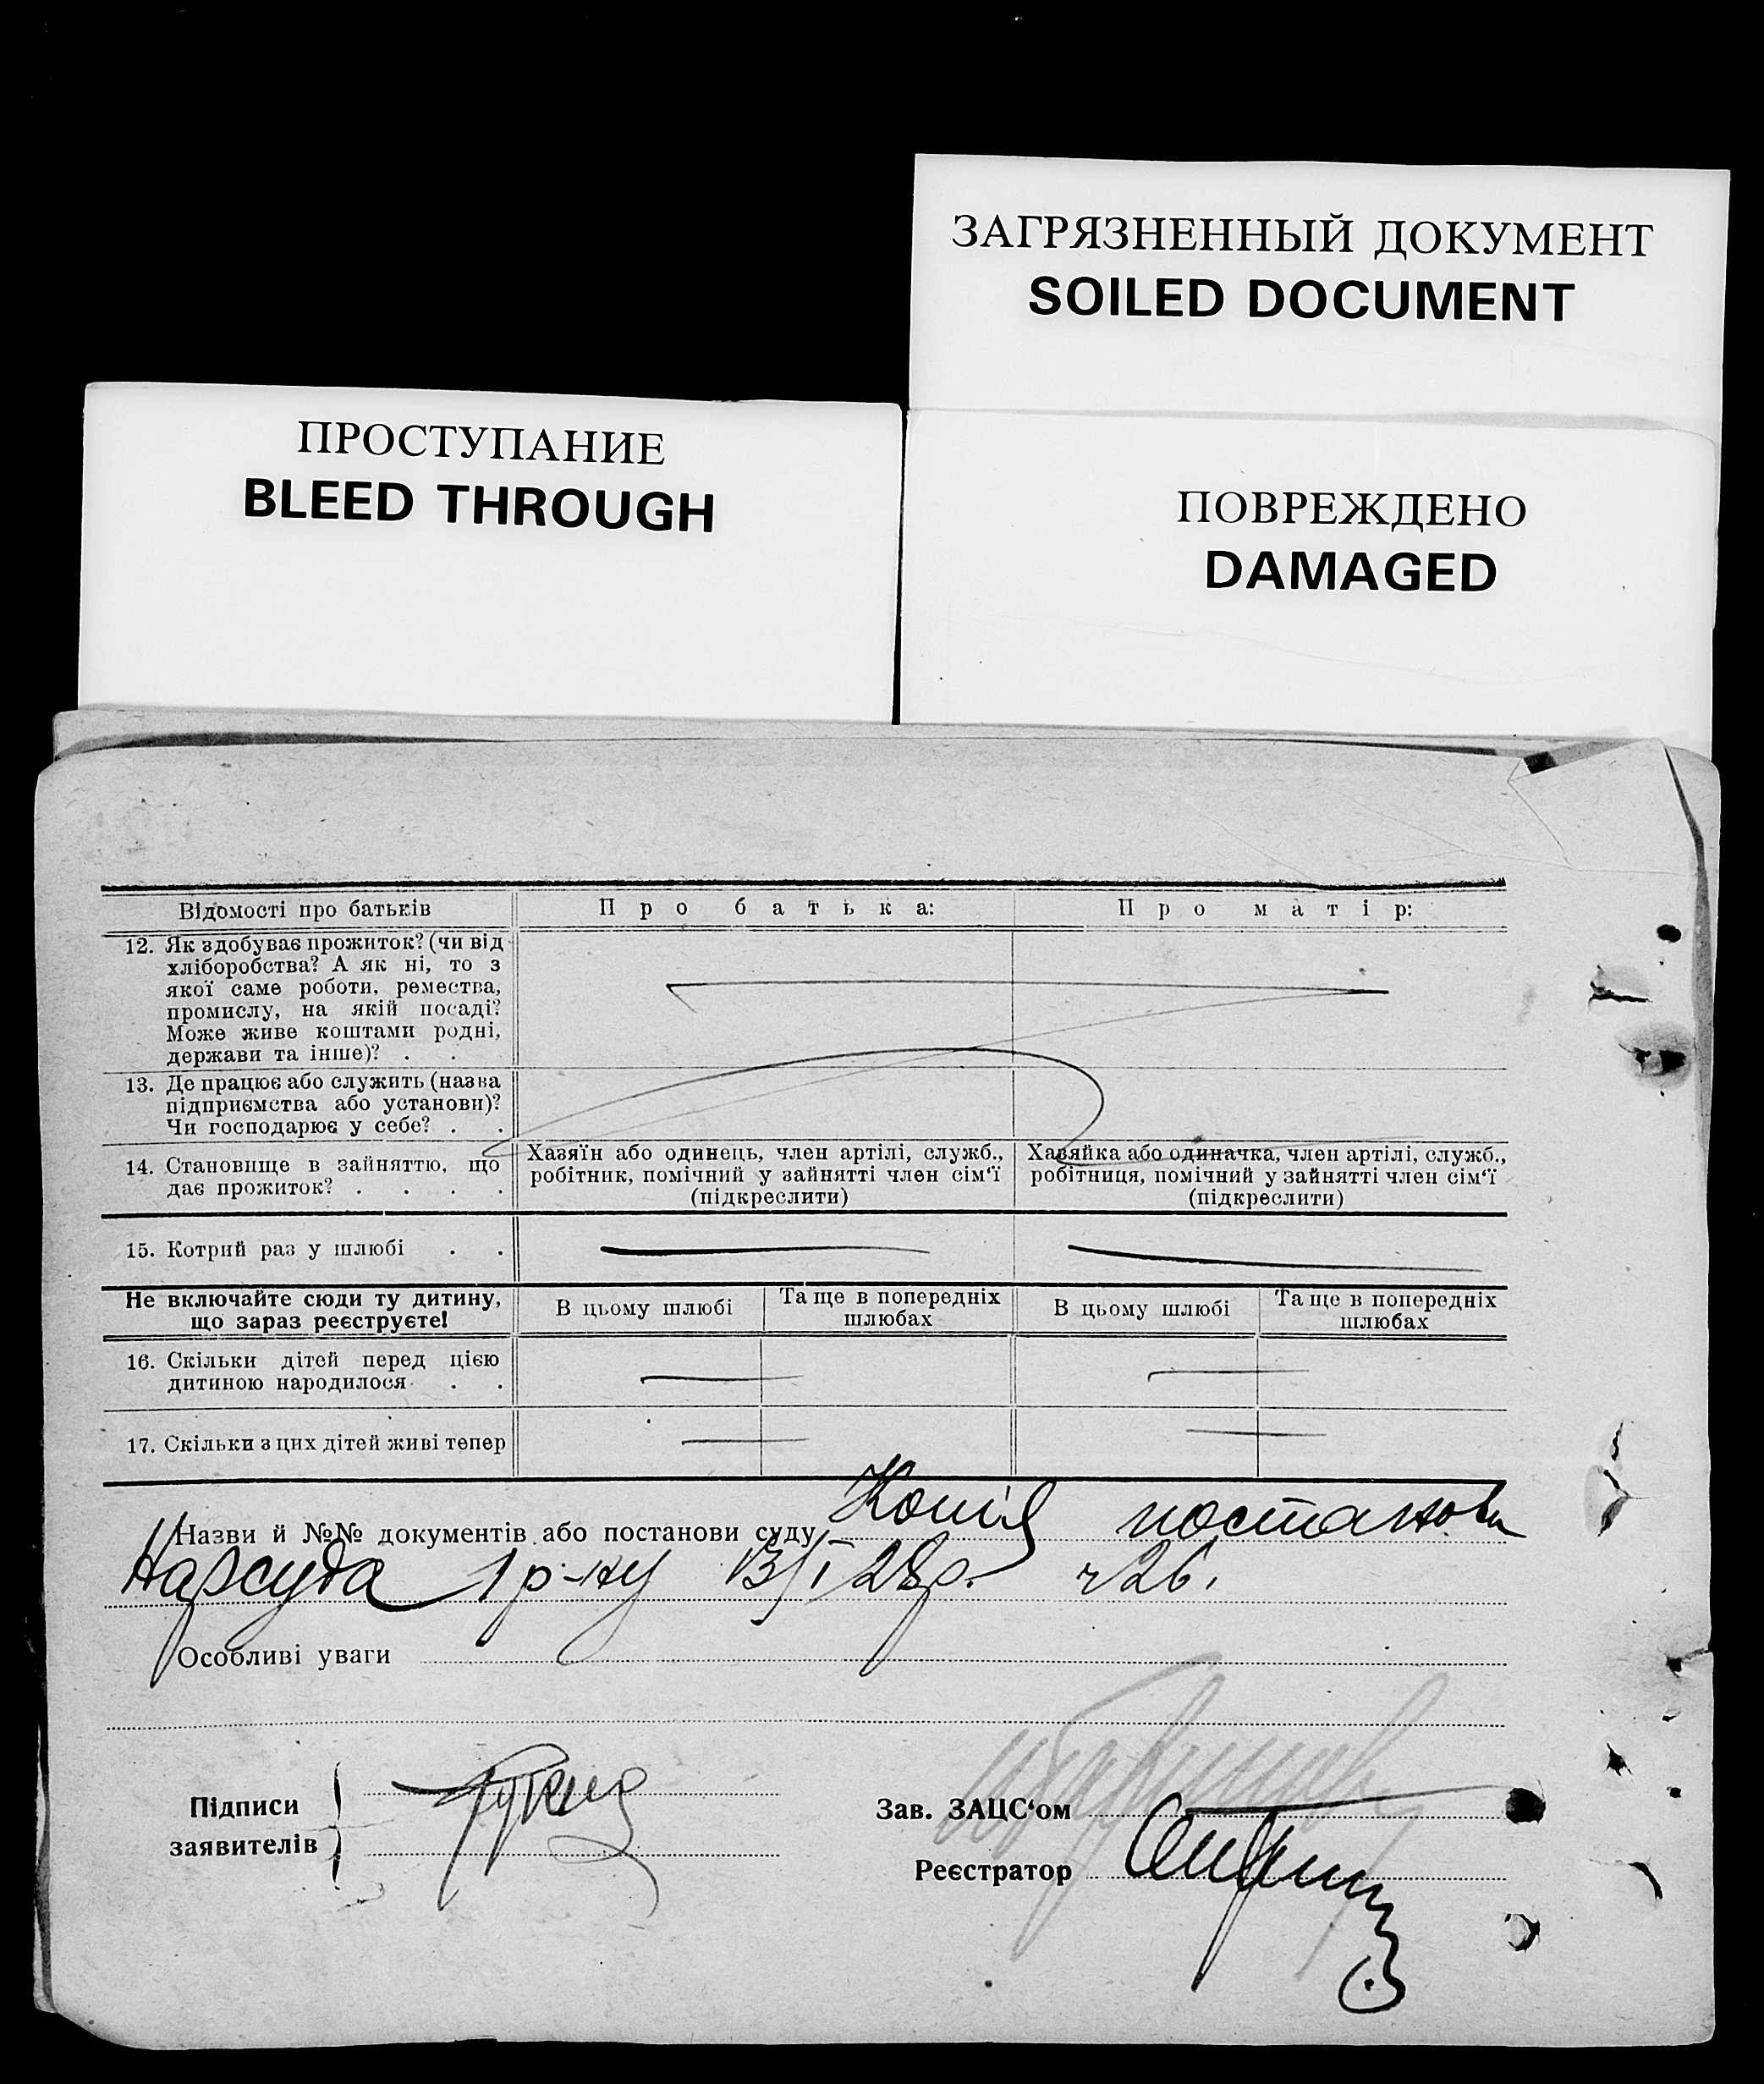 ЗАГРЯЗНЕННЫЙ ДОКУМЕНТ
SOILED DOCUMENT
ПРОСТУПАНИЕ
BLEED THROUGH
ПОВРЕЖДЕНО
DAMAGED
Відомості про батьків
Про батька:
Про матір:
12. Як здобуває прожиток? (чи від
хліборобства? А як ні, то з
якої саме роботи, ремества,
промислу, на якій посаді?
Може живе коштами родні,
держави та інше)? . .
13. Де працює або служить (назва
підприємства або установи)?
Чи господарює у себе? . .
14. Становище в зайняттю, що
дає прожиток? . . . .
Хазяїн або одинець, член артілі, служб.,
робітник, помічний у зайнятті член сім‘ї
(підкреслити)
Хазяйка або одиначка, член артілі, служб.,
робітниця, помічний у зайнятті член сім‘ї
(підкреслити)
15. Котрий раз у шлюбі . .
Не включайте сюди ту дитину,
що зараз реєструєте!
В цьому шлюбі
Та ще в попередніх
шлюбах
В цьому шлюбі
Та ще в попередніх
шлюбах
16. Скільки дітей перед цією
дитиною народилося . .
17. Скільки з цих дітей живі тепер
Назви й №№ документів або постанови суду Копія постанови
Нарсуда 1 р-ну 13/I 28р. ч 26.
Особливі уваги
Підписи
заявителів
Зав. ЗАЦС‘ом
Реєстратор